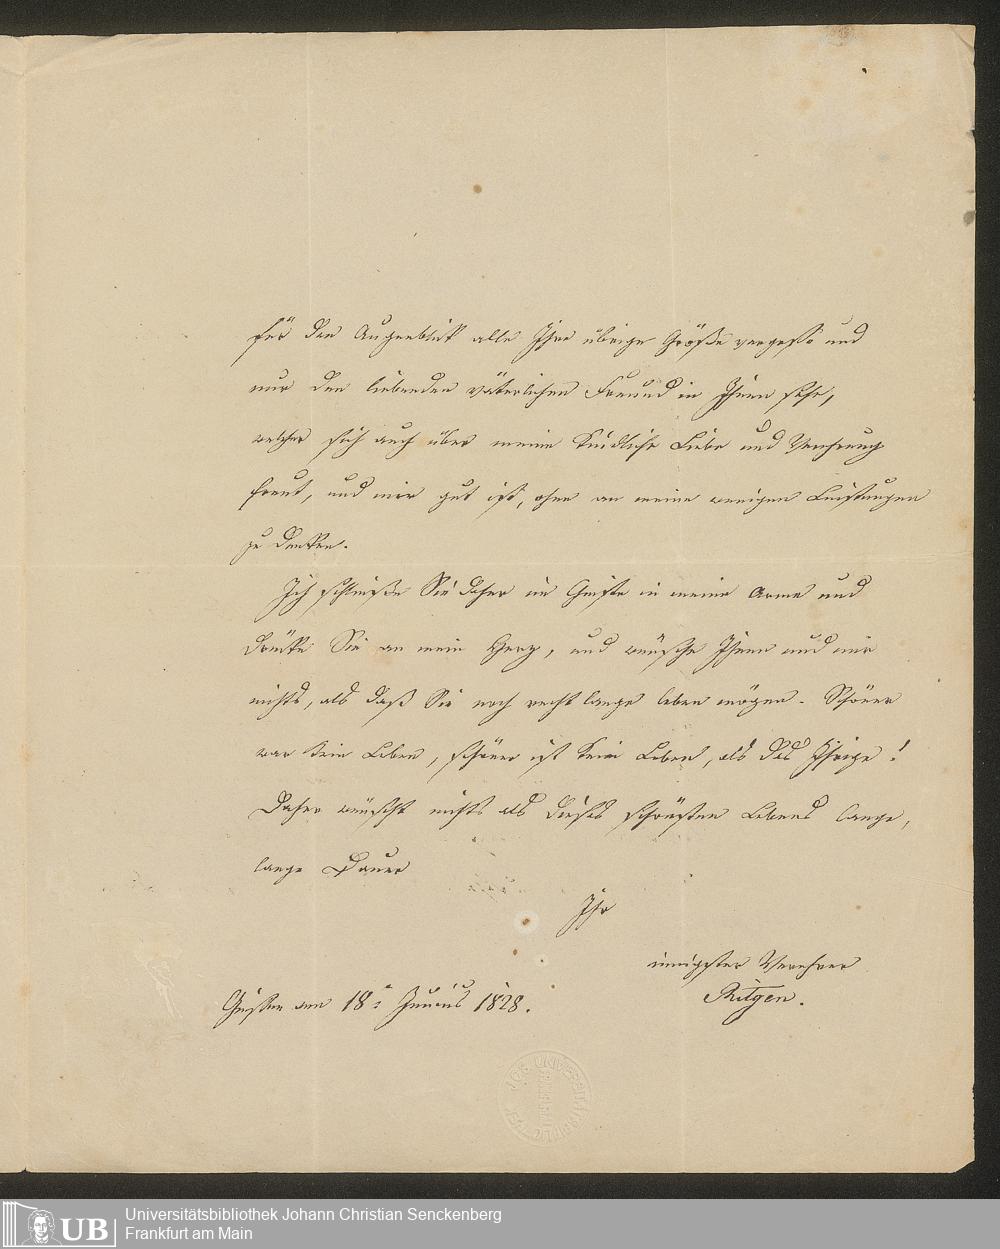 für den Augenblick alle Ihre übrige Größe vergesse und
nur den liebenden väterlichen Freund in Ihnen sehe,
welcher sich auch über meine kindliche Liebe und Verehrung
freut, und mir gut ist, ohne an meine wenigen Leistungen
zu denken.
Ich schließe Sie daher im Geiste in meine Arme und
drücke Sie an mein Herz, und wünsche Ihnen und mir
nichts, als daß Sie noch recht lange leben mögen. Schöner
war kein Leben, schöner ist kein Leben, als das Ihrige!
Daher wünscht nichts als dieses schönsten Lebens lange,
lange Dauer
Ihr
innigster Verehrer
Ritgen.
Gießen am 18 Junius 1828.
Universitätsbibliothek Johann Christian Senckenberg
Frankfurt am Main
UB